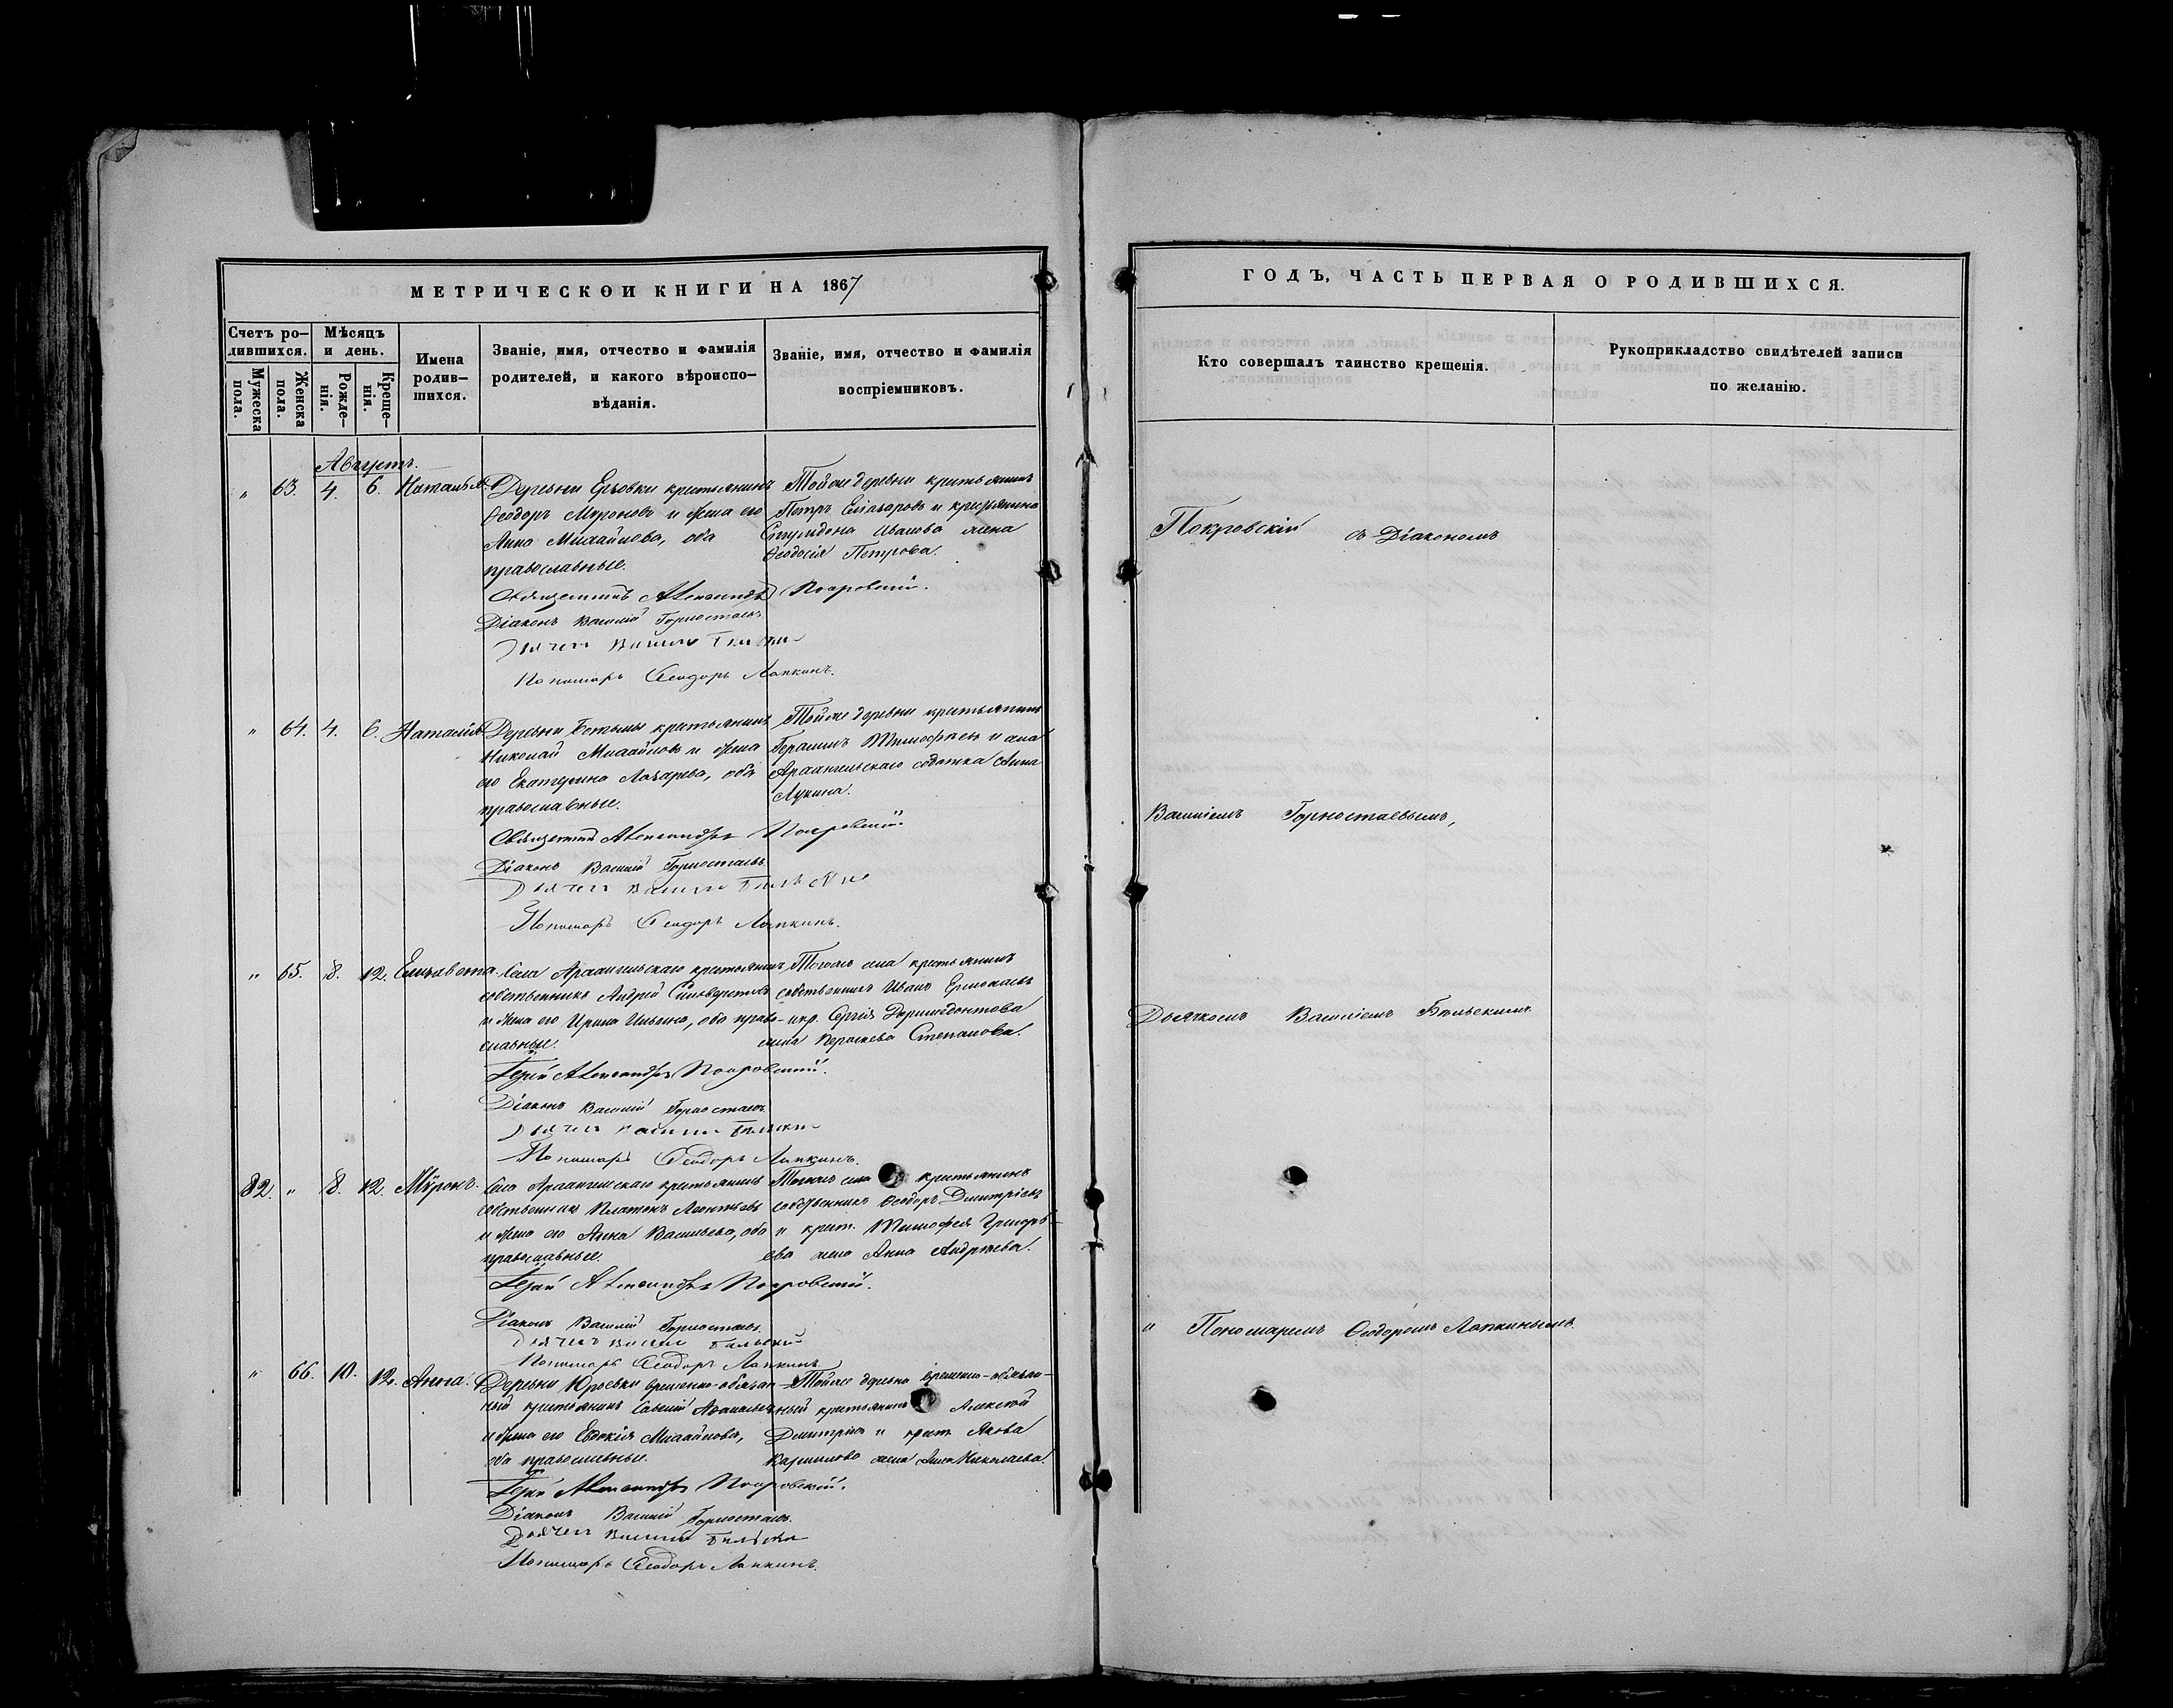 МЕТРИЧЕСКОЙ КНИГИ НА 1867
Счетъ ро-
дившихся.
Мѣсяцъ
и день.
Имена
родив-
шихся.
Званіе, имя, отчество и фамилія
родителей, и какого вѣроиспо-
вѣданія.
Званіе, имя, отчество и фамилія
воспріемниковъ.
Мужеска
пола.
Женска
пола.
Рожде-
нія.
Креще-
нія.
Августъ.
" 63. 4. 6. Наталія. Деревни Ерзовки крестьянинъ
Ѳеодоръ Мироновъ и жена его
Анна Михайлова, оба
православные.
Тойже деревни крестьянинъ
Петръ Елизаровъ и крестьянина
Спиридона Иванова жена
Ѳеодосія Петрова.
Священникъ Александръ Покровскій.
Діаконъ Василій Горностаевъ
Дьячекъ Василій Бѣльскій
Пономарь Ѳеодоръ Лапкинъ.
" 64. 4. 6. Наталія Деревни крестьянинъ
Николай Михайловъ и жена
его Екатерина Лазарева, оба
православные.
Тойже деревни крестьянинъ
Герасимъ Тимофѣевъ и села
Архангельскаго солдатка Анна
Лукина.
Священникъ Александръ Покровскій
Діаконъ Василій Горностаевъ.
Дьячекъ Василій Бѣльскій
Пономарь Ѳеодоръ Лапкинъ.
" 65. 8. 12. Елизавета. Села Архангельскаго крестьянинъ
собственникъ Андрей Селиверстовъ
и жена его Ирина Ильина, оба право-
славные.
Тогоже села крестьянинъ
собственникъ Иванъ Ермолаевъ
и кр. Сергія Дормидонтова
жена Степанова.
Іерей Александръ Покровскій.
Діаконъ Василій Горностаевъ
Дьячекъ Василій Бѣльскій
Пономарь Ѳеодоръ Лапкинъ.
82. " 8. 12. Мѵронъ. Села Архангельскаго крестьянинъ
собственникъ Платонъ Леонтьевъ
и жена его Анна Васильева, оба
православные.
Тогоже села крестьянинъ
собственникъ Ѳеодоръ Дмитріевъ
и крест. Тимофея Григорь-
ева жена Анна Андреева.
Іерей Александръ Покровскій.
Діаконъ Василій Горностаевъ.
Дьячекъ Василій Бѣльскій
Пономарь Ѳеодоръ Лапкинъ
" 66. 10. 12. Анна. Деревни Юрьевки временно-обязан-
ный крестьянинъ Савелій Аѳанасьевъ
и жена его Евдокія Михайлова,
оба православные.
Тойже деревни временно-обязан-
ный крестьянинъ Алексѣй
Дмитріевъ и крест. Якова
жена Анна Николаева.
Іерей Александръ Покровскій.
Діаконъ Василій Горностаевъ.
Дьячекъ Василій Бѣльскій
Пономарь Ѳеодоръ Лапкинъ.
ГОДЪ, ЧАСТЬ ПЕРВАЯ О РОДИВШИХСЯ.
Кто совершалъ таинство крещенія.
Рукоприкладство свидѣтелей записи
по желанію.
Покровскій съ Діакономъ
Василіемъ Горностаевымъ,
Дьячкомъ Василіемъ Бѣльскимъ
и Пономаремъ Ѳеодоромъ Лапкинымъ.